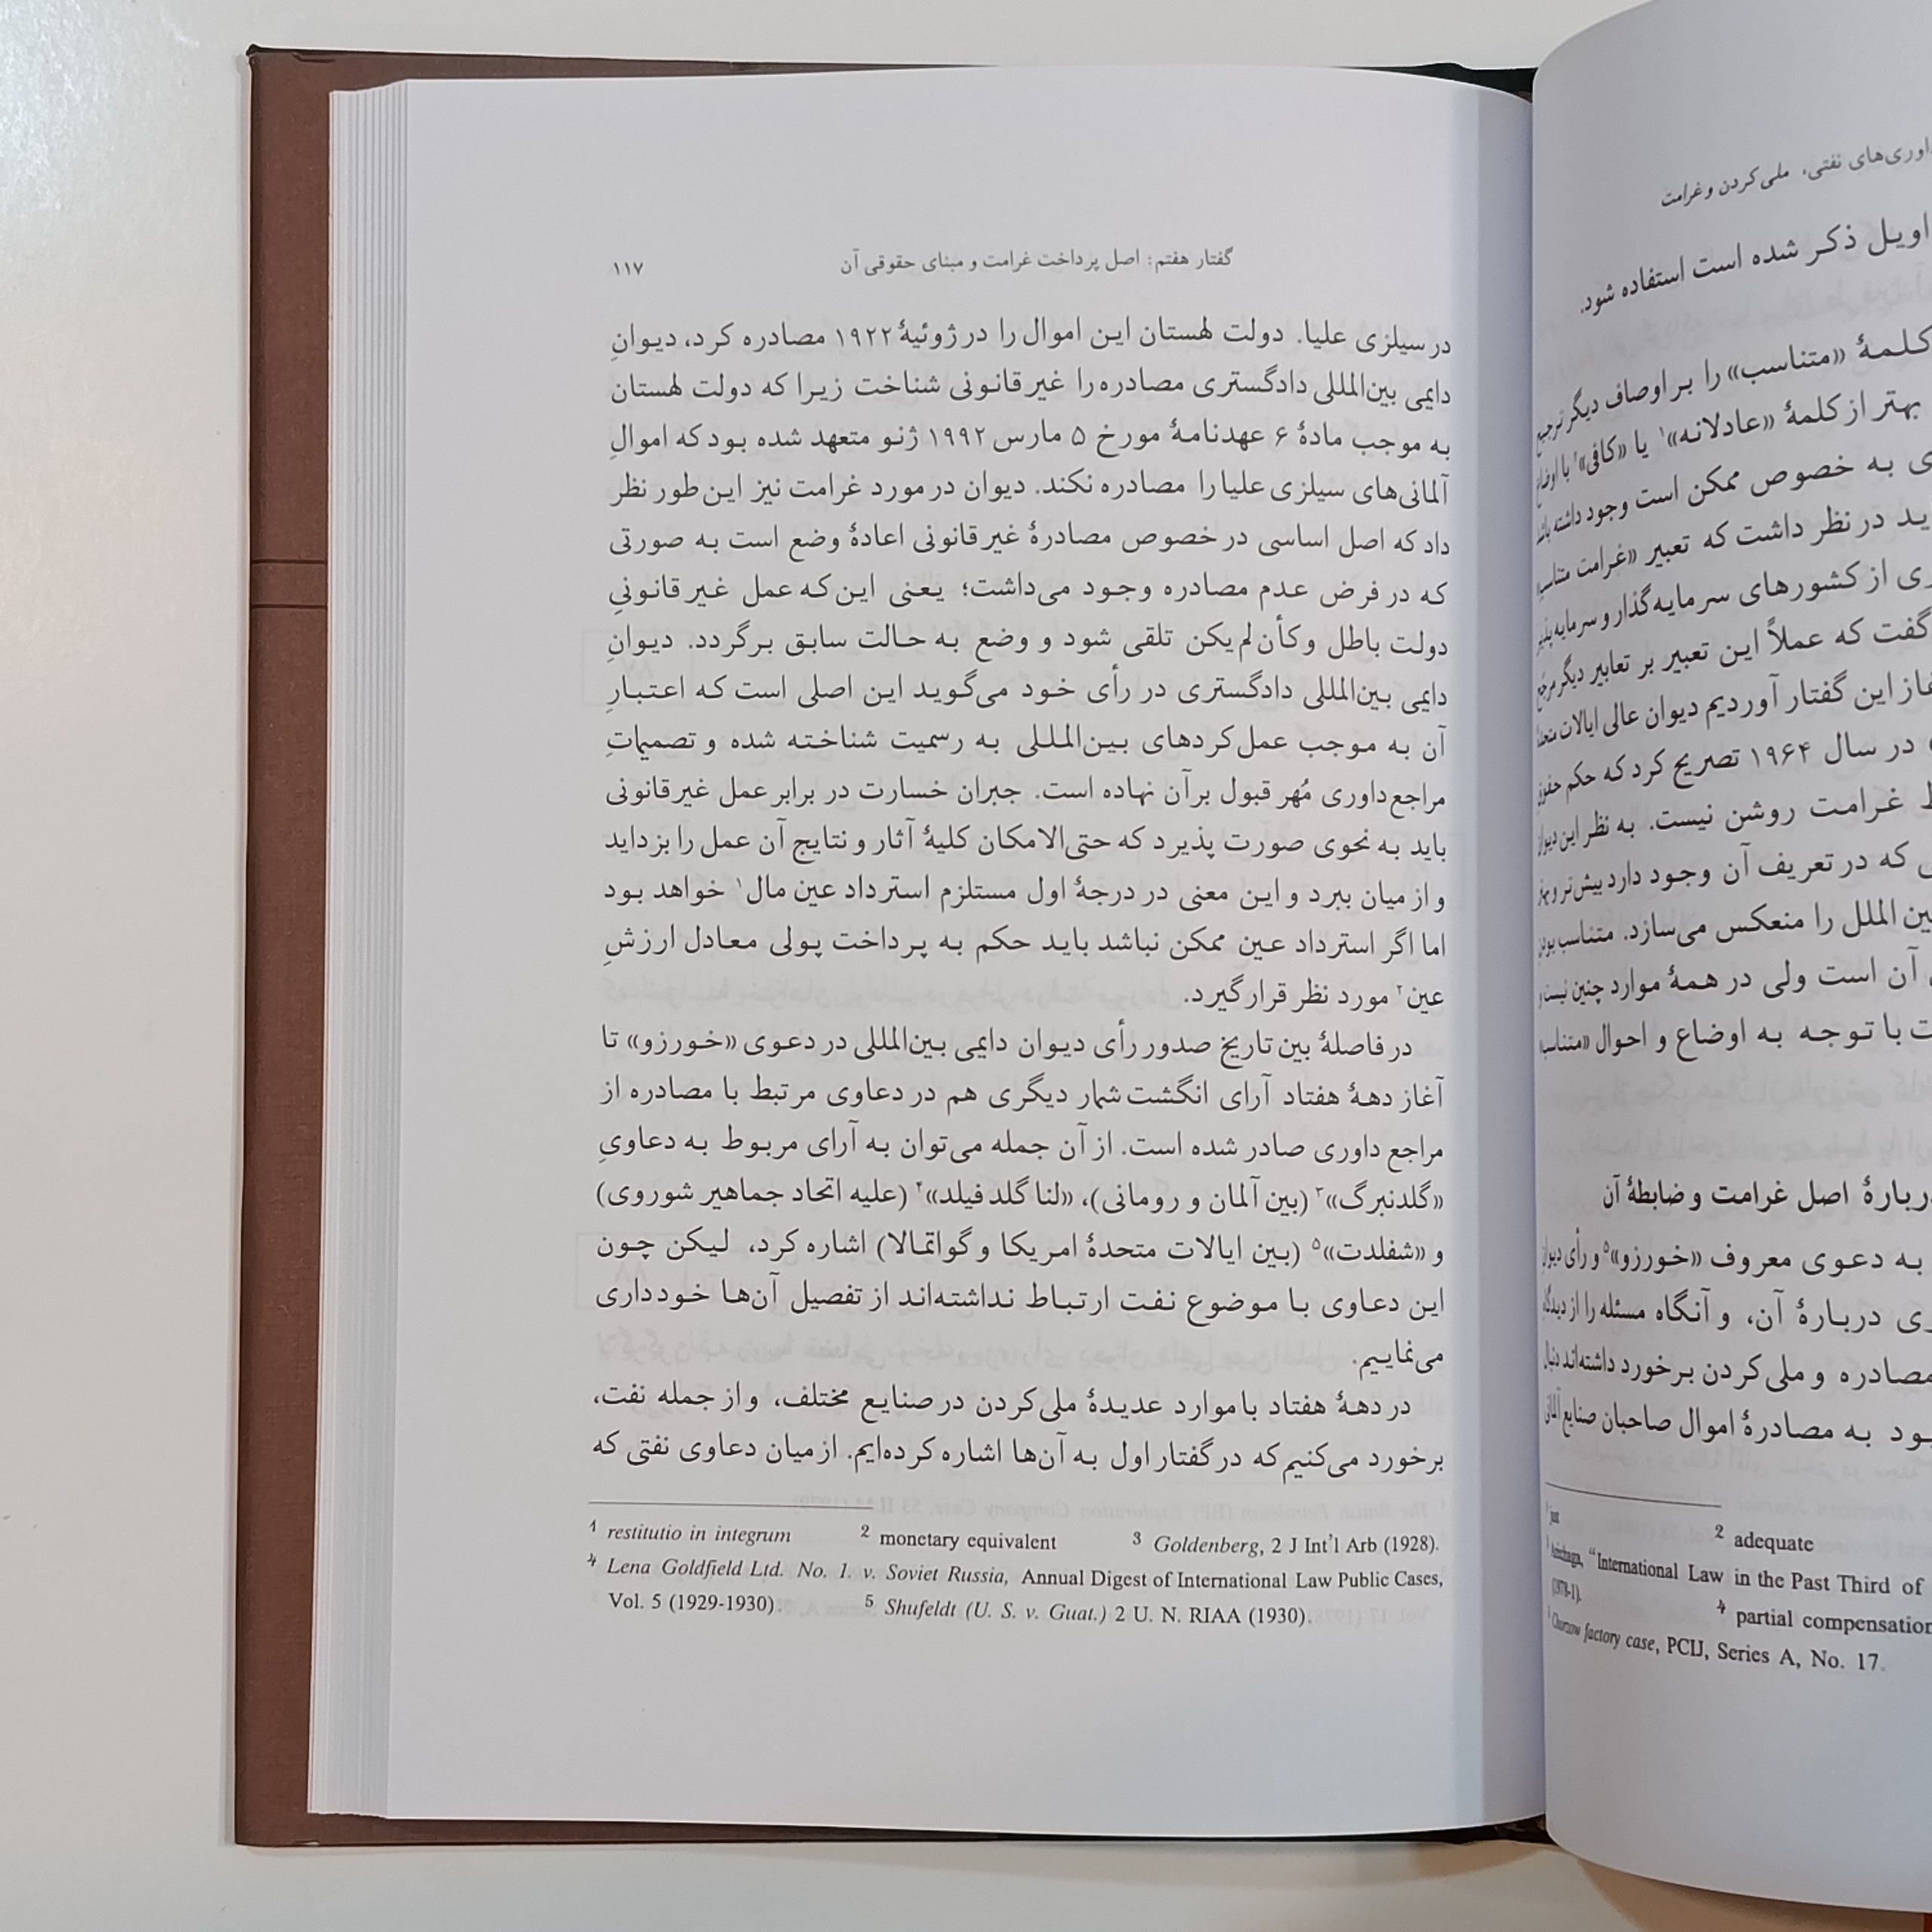 ملی‌کردن و غرامت
ذکر شده است استفاده شود.
«متناسب» را بر اوصاف دیگر ترجیح
بهتر از کلمهٔ «عادلانه»۱ یا «کافی»۲ با
به خصوص ممکن است وجود داشته
در نظر داشت که تعبیر «غرامت متناسب»
از کشورهای سرمایه‌گذار و سرمایه‌پذیر
گفت که عملاً این تعبیر بر تعابیر دیگر مرجح
این گفتار آوردیم دیوان عالی ایالات متحده
در سال ۱۹۶۴ تصریح کرد که حکم حقوق
غرامت روشن نیست. به نظر این دیوان
که در تعریف آن وجود دارد بیش‌تر و بهتر
الملل را منعکس می‌سازد. متناسب بودن
آن است ولی در همهٔ موارد چنین نیست و
با توجه به اوضاع و احوال «متناسب»
اصل غرامت و ضابطهٔ آن
به دعوی معروف «خورزو»۵ و رأی دیوان
دربارهٔ آن، و آنگاه مسئله را از دیدگاه
مصادره و ملی‌کردن برخورد داشته‌اند دنبال
به مصادرهٔ اموال صاحبان صنایع آلمانی
1 just 2 adequate
"International Law in the Past Third of
(1978-1). 4 partial compensation
5 Chorzow factory case, PCIJ, Series A, No. 17.
گفتار هفتم: اصل پرداخت غرامت و مبنای حقوقی آن ۱۱۷
در سیلزی علیا. دولت لهستان این اموال را در ژوئیهٔ ۱۹۲۲ مصادره کرد، دیوانِ
دایمی بین‌المللی دادگستری مصادره را غیرقانونی شناخت زیرا که دولت لهستان
به موجب مادهٔ ۶ عهدنامهٔ مورخ ۵ مارس ۱۹۹۲ ژنو متعهد شده بود که اموالِ
آلمانی‌های سیلزی علیا را مصادره نکند. دیوان در مورد غرامت نیز این‌طور نظر
داد که اصل اساسی در خصوص مصادرهٔ غیرقانونی اعادهٔ وضع است به صورتی
که در فرض عدم مصادره وجود می‌داشت؛ یعنی این‌که عمل غیرقانونیِ
دولت باطل و کأن لم یکن تلقی شود و وضع به حالت سابق برگردد. دیوانِ
دایمی بین‌المللی دادگستری در رأی خود می‌گوید این اصلی است که اعتبارِ
آن به موجب عمل‌کردهای بین‌المللی به رسمیت شناخته شده و تصمیماتِ
مراجع داوری مُهر قبول بر آن نهاده است. جبران خسارت در برابر عمل غیرقانونی
باید به نحوی صورت پذیرد که حتی‌الامکان کلیهٔ آثار و نتایج آن عمل را بزداید
و از میان ببرد و این معنی در درجهٔ اول مستلزم استرداد عین مال۱ خواهد بود
اما اگر استرداد عین ممکن نباشد باید حکم به پرداخت پولی معادل ارزشِ
عین۲ مورد نظر قرار گیرد.
در فاصلهٔ بین تاریخ صدور رأی دیوان دایمی بین‌المللی در دعوی «خورزو» تا
آغاز دههٔ هفتاد آرای انگشت‌شمار دیگری هم در دعاوی مرتبط با مصادره از
مراجع داوری صادر شده است. از آن جمله می‌توان به آرای مربوط به دعاویِ
«گلدنبرگ»۳ (بین آلمان و رومانی)، «لنا گلدفیلد»۴ (علیه اتحاد جماهیر شوروی)
و «شفلدت»۵ (بین ایالات متحدهٔ امریکا و گواتمالا) اشاره کرد، لیکن چون
این دعاوی با موضوع نفت ارتباط نداشته‌اند از تفصیل آن‌ها خودداری
می‌نماییم.
در دههٔ هفتاد با موارد عدیدهٔ ملی‌کردن در صنایع مختلف، و از جمله نفت،
برخورد می‌کنیم که در گفتار اول به آن‌ها اشاره کرده‌ایم. از میان دعاوی نفتی که
1 restitutio in integrum 2 monetary equivalent 3 Goldenberg, 2 J Int'l Arb (1928).
4 Lena Goldfield Ltd. No. 1. v. Soviet Russia, Annual Digest of International Law Public Cases,
Vol. 5 (1929-1930). 5 Shufeldt (U. S. v. Guat.) 2 U. N. RIAA (1930).